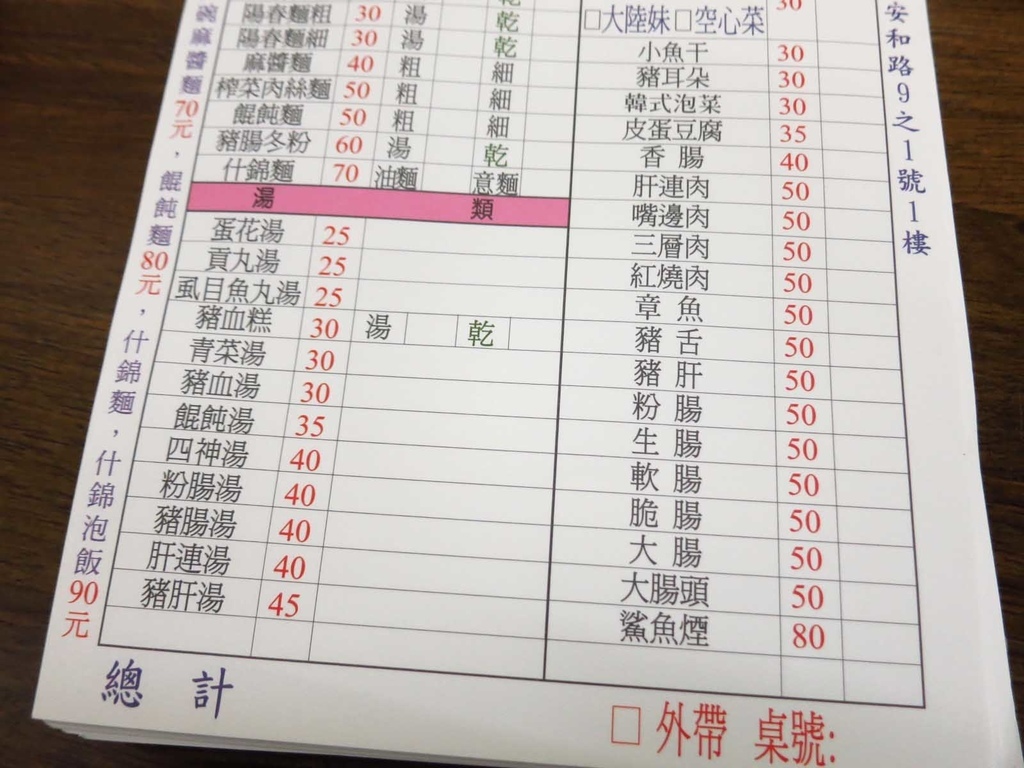 碗麻醬麵70元，餛飩麵80元，什錦麵，什錦泡飯90元
陽春麵粗 30 湯 乾
陽春麵細 30 湯 乾
麻醬麵 40 粗 細
榨菜肉絲麵 50 粗 細
餛飩麵 50 粗 細
豬腸冬粉 60 湯 乾
什錦麵 70 油麵 意麵
湯 類
蛋花湯 25
貢丸湯 25
虱目魚丸湯 25
豬血糕 30 湯 乾
青菜湯 30
豬血湯 30
餛飩湯 35
四神湯 40
粉腸湯 40
豬腸湯 40
肝連湯 40
豬肝湯 45
□大陸妹□空心菜 30
小魚干 30
豬耳朵 30
韓式泡菜 30
皮蛋豆腐 35
香腸 40
肝連肉 50
嘴邊肉 50
三層肉 50
紅燒肉 50
章魚 50
豬舌 50
豬肝 50
粉腸 50
生腸 50
軟腸 50
脆腸 50
大腸 50
大腸頭 50
鯊魚煙 80
安和路9之1號1樓
總計
□外帶 桌號: